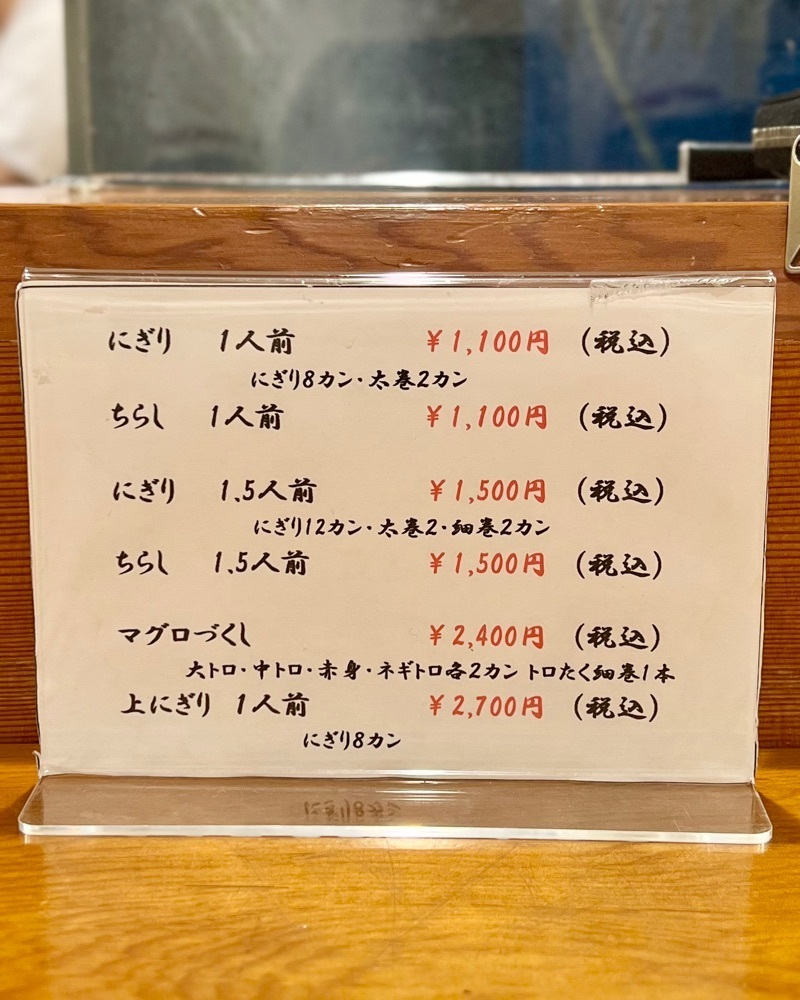 にぎり 1人前 ¥1,100円 (税込)
にぎり8カン・太巻2カン
ちらし 1人前 ¥1,100円 (税込)
にぎり 1.5人前 ¥1,500円 (税込)
にぎり12カン・太巻2・細巻2カン
ちらし 1.5人前 ¥1,500円 (税込)
マグロづくし ¥2,400円 (税込)
大トロ・中トロ・赤身・ネギトロ各2カン トロたく細巻1本
上にぎり 1人前 ¥2,700円 (税込)
にぎり8カン